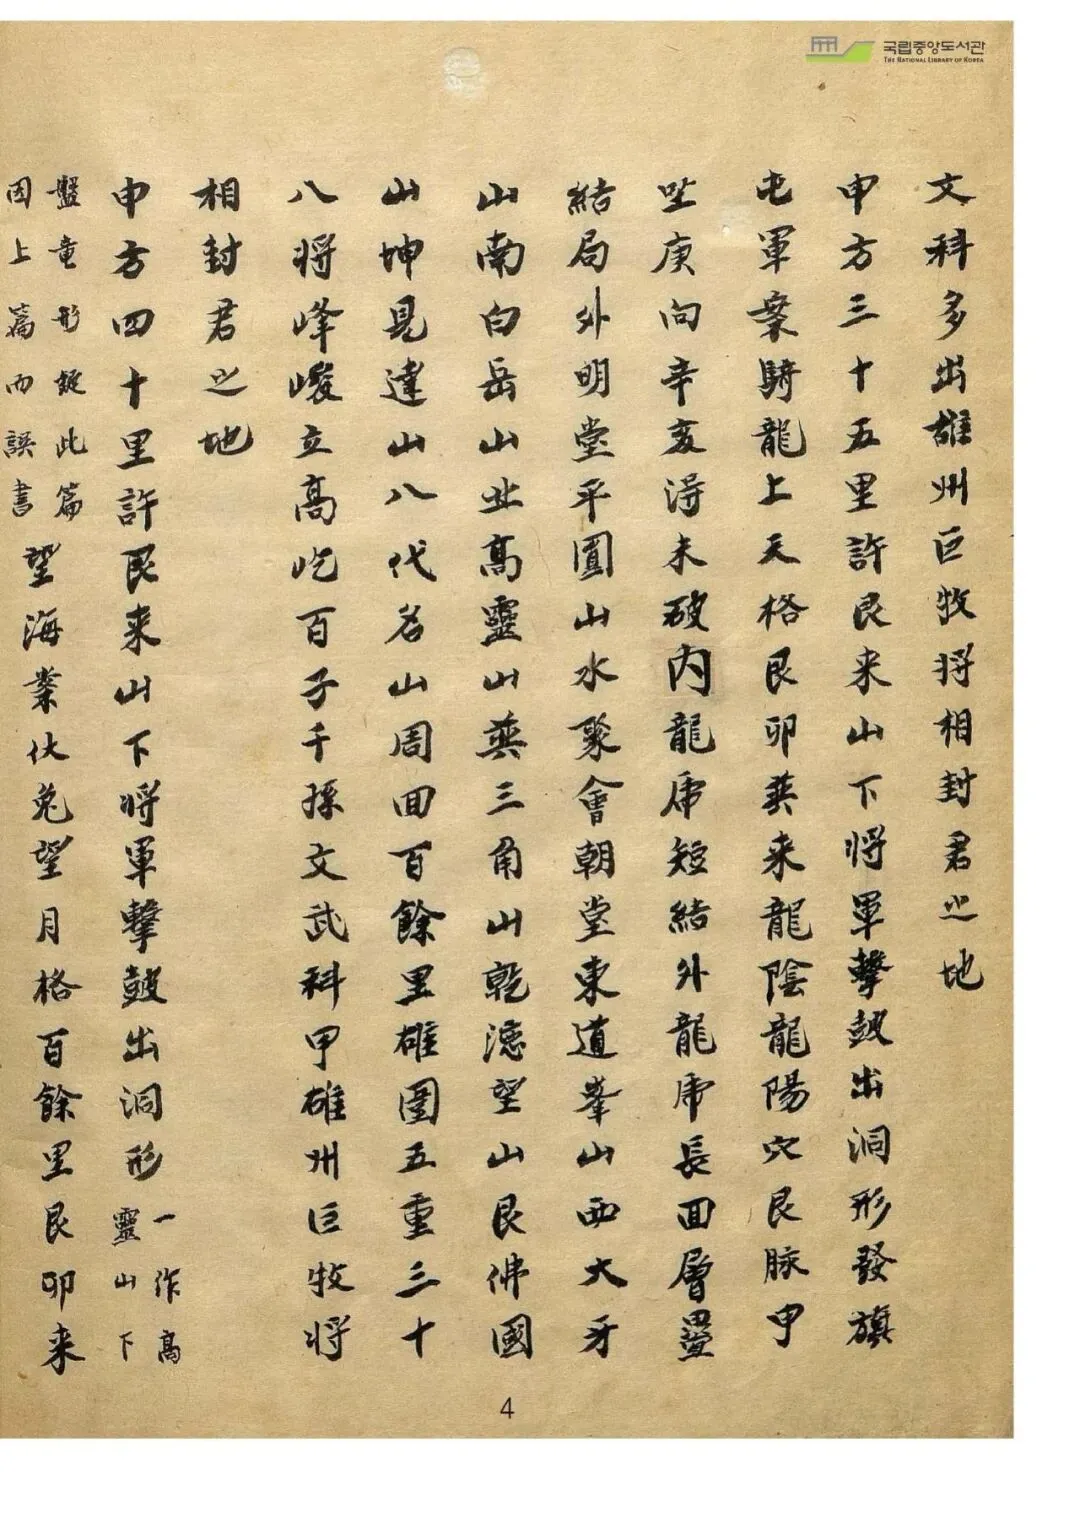 국립중앙도서관
THE NATIONAL LIBRARY OF KOREA
文科多出雄州巨牧将相封君之地
申方三十五里許艮来山下将軍擊鼓出洞形發旗
屯軍案騎龍上天格艮卯巽来龍陰龍陽穴艮脉甲
坐庚向辛亥淂未破内龍虎短結外龍虎長回層疊
結局外明堂平圓山水聚會朝堂東道峯山西大牙
山南白岳山北高靈山巽三角山乾滮望山艮佛國
山坤見達山八代名山周回百餘里雄圍五重三十
八将峰峻立高屹百子千孫文武科甲雄州巨牧将
相封君之地
申方四十里許艮来山下将軍擊鼓出洞形一作高
靈山下
盤龍形㨂此篇
因上篇而誤書望海案伏兎望月格百餘里艮卯来
4